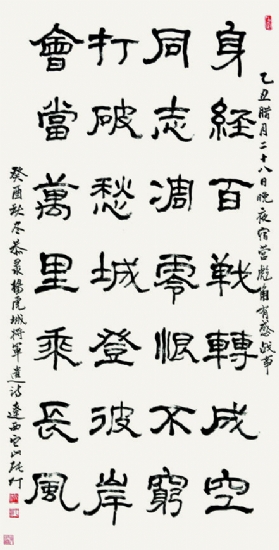 乙丑腊月二十八日晚夜宿有感故事
身經百戰轉成空
同志凋零恨不窮
打破愁城登彼岸
會當萬里乘長風
癸酉秋尽恭录楊虎城將軍遺詩遼西